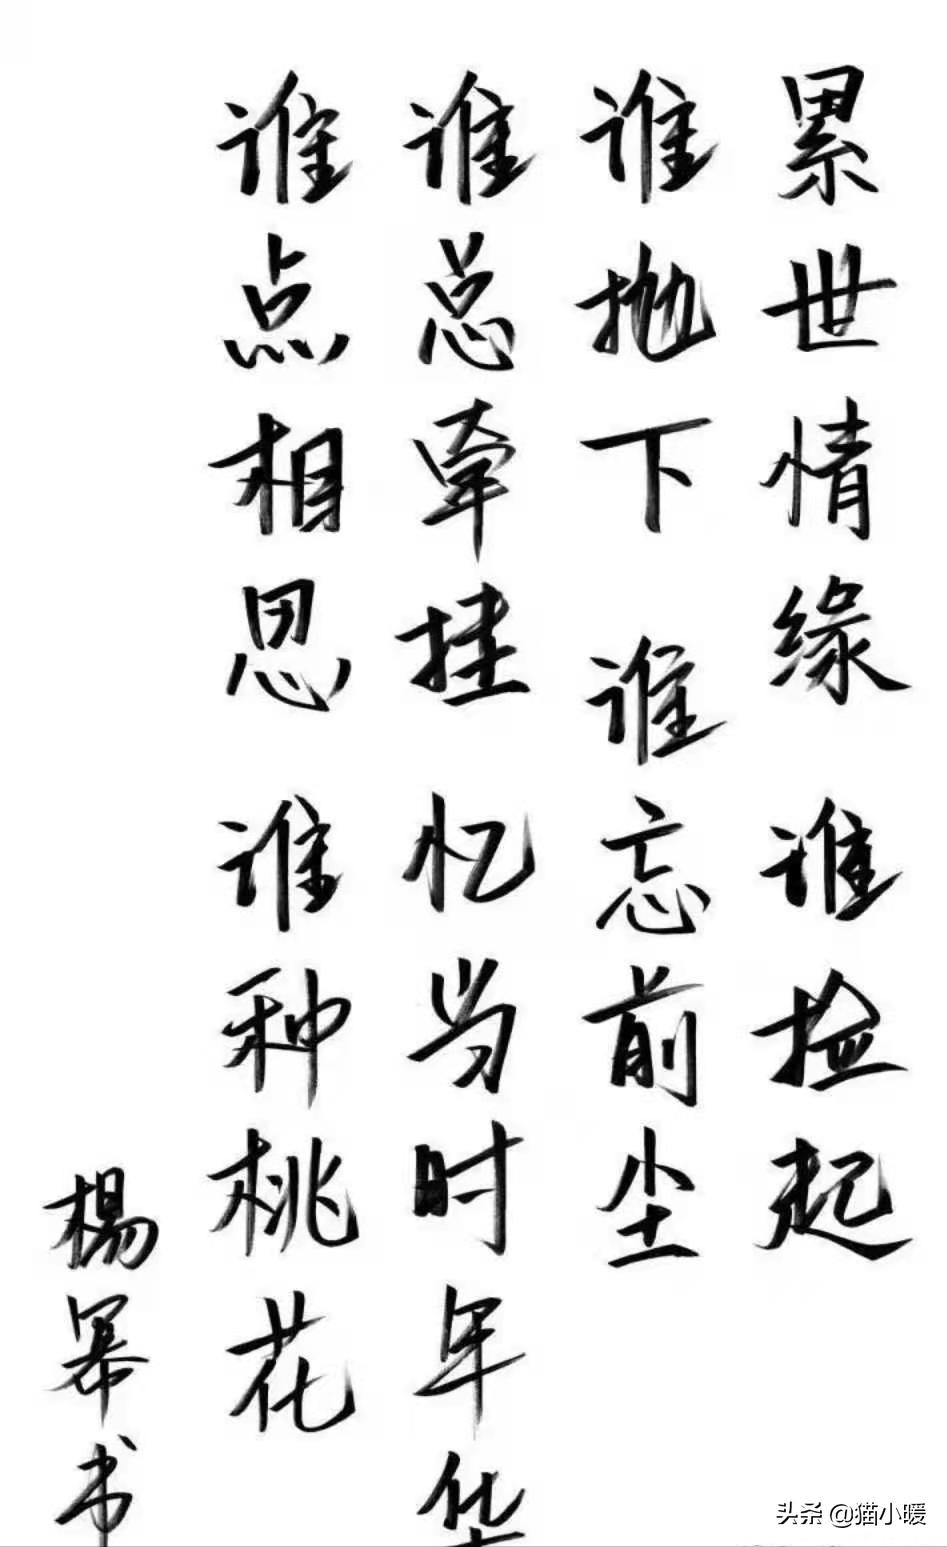 累世情缘 谁捡起
谁抛下 谁忘前尘
谁总牵挂 忆当时年华
谁点相思 谁种桃花
楊幂书
头条 @猫小暖